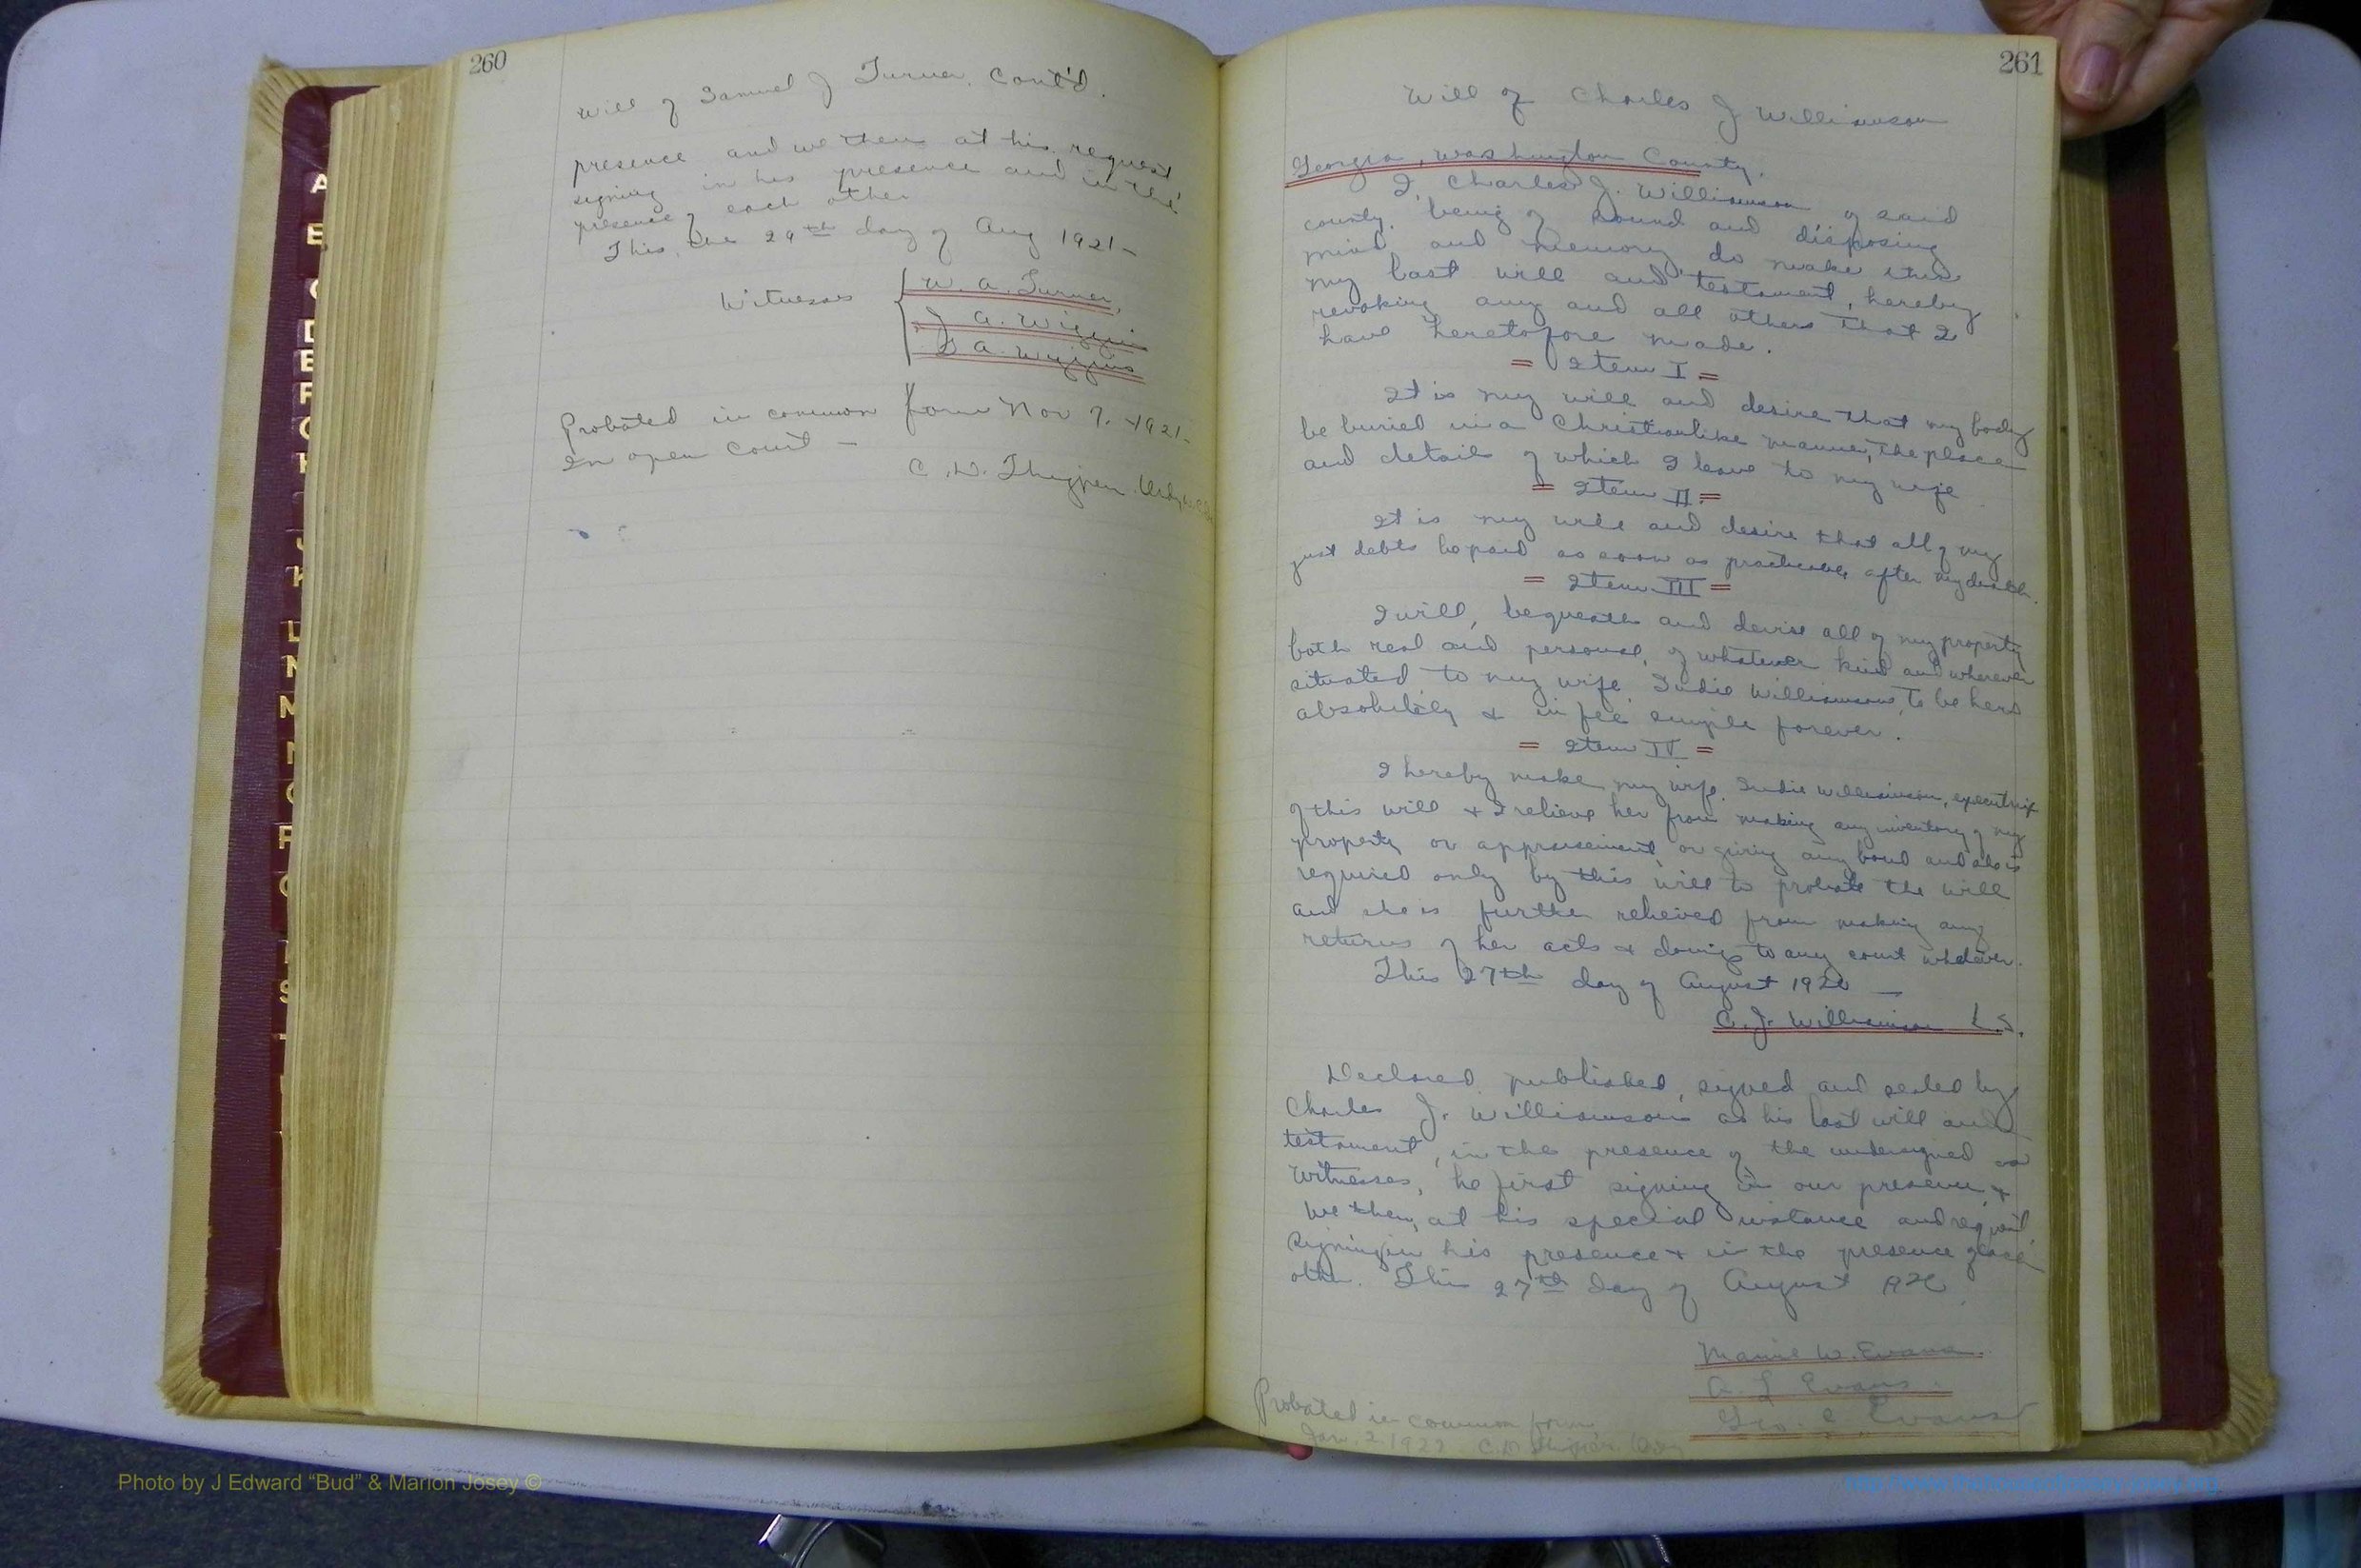 260
Will of Samuel J Turner, Cont'd.
presence and we then at his request
signing in his presence and in the
presence of each other
This, the 29th day of Aug 1921-
Witnesses
W. A. Turner,
J A. Wiggins
A. Wiggins
Probated in common form Nov 7, 1921-
In open Court -
C. D. Thigpen
261
Will of Charles J Williamson
Georgia, Washington County.
I, Charles J. Williamson of said
county, being of sound and disposing
mind and memory do make this
my last will and testament, hereby
revoking any and all others that I
have heretofore made.
= Item I =
It is my will and desire that my body
be buried in a Christianlike manner, the place
and detail of which I leave to my wife
= Item II =
It is my will and desire that all of my
just debts be paid as soon as practicable after my death.
= Item III =
I will, bequeath and devise all of my property
both real and personal, of whatever kind and wherever
situated to my wife, Williamson, to be hers
absolutely & in fee simple forever.
= Item IV =
I hereby make my wife, Williamson, executrix
of this will & I relieve her from making any inventory of my
property or appraisement, or giving any bond and she is
required only by this will to probate the will
and she is further relieved from making any
returns of her acts & doings to any court whatever.
This 27th day of August 1920 -
C. J. Williamson L.S.
Declared, published, signed and sealed by
Charles J. Williamson as his last will and
testament, in the presence of the undersigned as
witnesses, he first signing in our presence &
we then, at his special instance and request,
signing in his presence & in the presence of each
other. This 27th day of August 1920
Mamie W. Evans.
A. L Evans.
Geo. C Evans
Probated in common form
Jan. 2 1922 C.D. Thigpen
Photo by J Edward “Bud” & Marion Josey ©